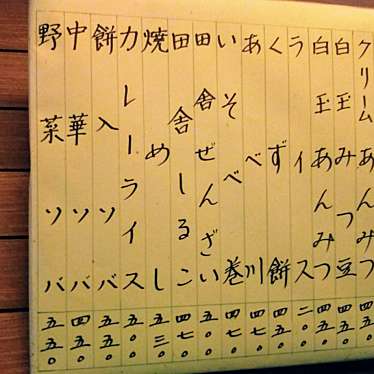 クリームあんみつ
白玉みつ豆 四五〇
白玉あんみつ 四五〇
ライス 二〇〇
くず餅 四五〇
あべ川 四七〇
いそべ巻 四七〇
田舎ぜんざい 五〇〇
田舎しるこ 四七〇
焼めし 五三〇
カレーライス 五〇〇
餅入ソバ 五五〇
中華ソバ 四五〇
野菜ソバ 五五〇